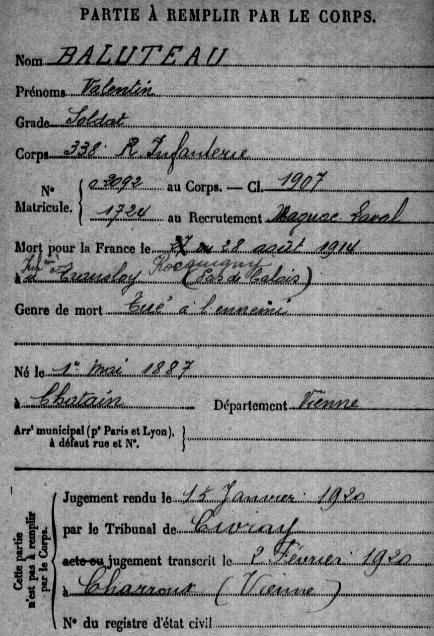 PARTIE À REMPLIR PAR LE CORPS.
Nom BALUTEAU
Prénoms Valentin
Grade Soldat
Corps 338e R Infanterie
N° Matricule. { 02092 au Corps. — Cl. 1907
1724 au Recrutement Magnac-Laval
Mort pour la France le 27 au 28 août 1914
Rocquigny
à Transloy (Pas de Calais)
Genre de mort Tué à l'ennemi
Né le 1er Mai 1887
à Chatain Département Vienne
Arrt municipal (pr Paris et Lyon), à défaut rue et N°. }
Cette partie n'est pas à remplir par le Corps. {
Jugement rendu le 15 Janvier 1920
par le Tribunal de Civray
acte ou jugement transcrit le 2 Février 1920
à Charroux (Vienne)
N° du registre d'état civil